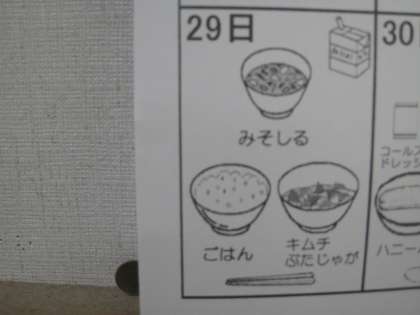 29日
30
みそしる
コールス
ドレッシ
ごはん
キムチ
ぶたじゃが
ハニー